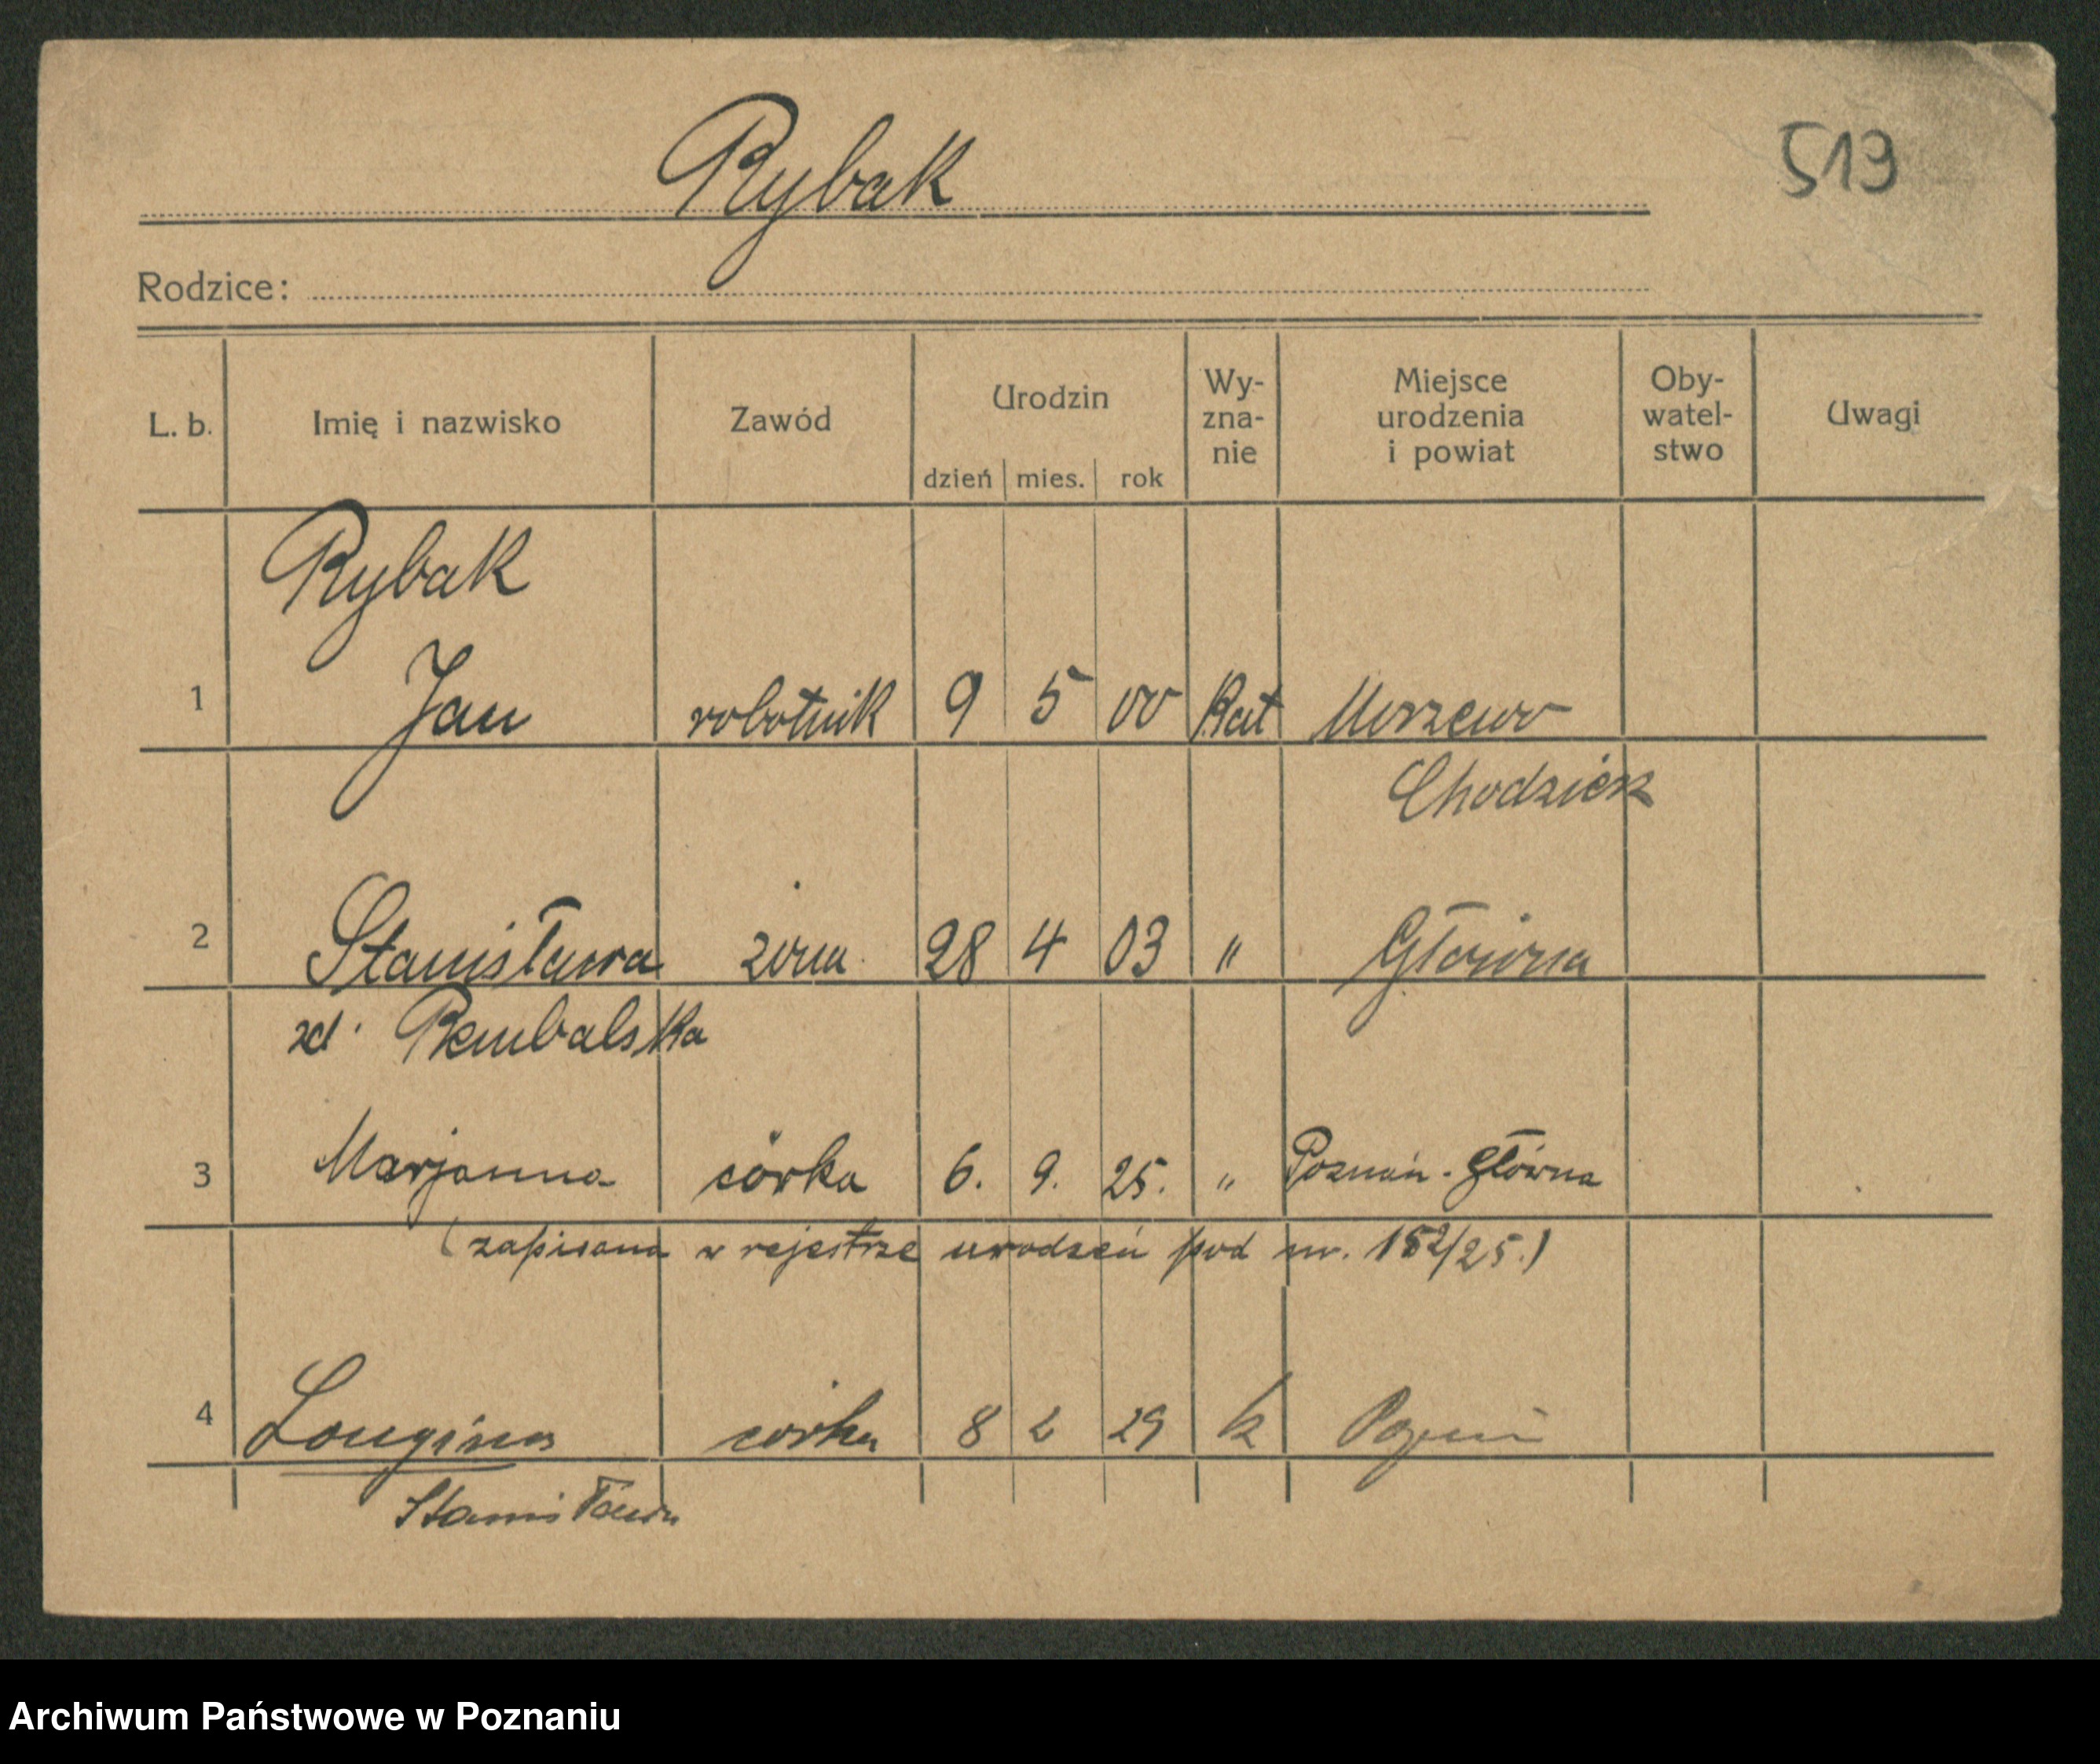 Rybak
519
Rodzice:
L. b. Imię i nazwisko Zawód Urodzin dzień mies. rok Wy-zna-nie Miejsce urodzenia i powiat Oby-watel-stwo Uwagi
Rybak
1 Jan robotnik 9 5 00 Kat Morzewo
Chodzież
2 Stanisława żona 28 4 03 " Główna
zd. Rembalska
3 Marjanna córka 6. 9. 25. " Poznań-Główna
(zapisana w rejestrze urodzeń pod nr. 152/25.)
4 Longina córka 8 2 29 k Poznań
Stanisława
Archiwum Państwowe w Poznaniu